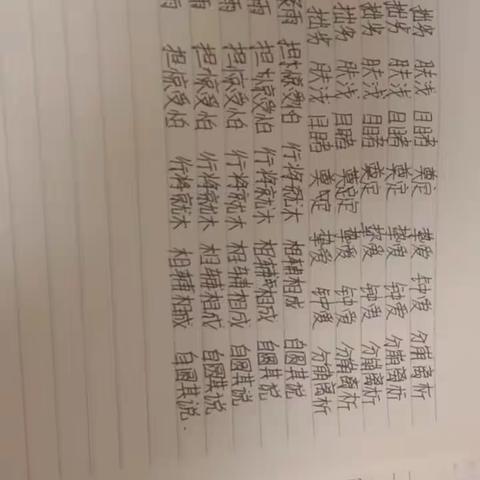 拙劣 肤浅 目睹 奠定 挚爱 钟爱 分崩离析
拙劣 肤浅 目睹 奠定 挚爱 钟爱 分崩离析
拙劣 肤浅 目睹 奠定 挚爱 钟爱 分崩离析
拙劣 肤浅 目睹 奠定 挚爱 钟爱 分崩离析
拙劣 肤浅 目睹 奠定 挚爱 钟爱 分崩离析
雨 担惊受怕 行将就木 相辅相成 自圆其说
雨 担惊受怕 行将就木 相辅相成 自圆其说
雨 担惊受怕 行将就木 相辅相成 自圆其说
雨 担惊受怕 行将就木 相辅相成 自圆其说
雨 担惊受怕 行将就木 相辅相成 自圆其说.